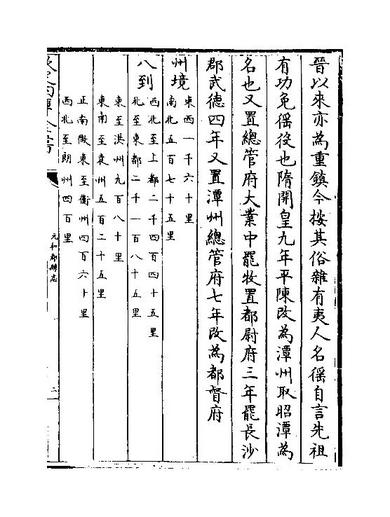 晉以來亦為重鎮今按其俗雜有夷人名傜自言先祖
有功免徭役也隋開皇九年平陳改為潭州取昭潭為
名也又置總管府大業中罷牧置都尉府三年罷長沙
郡武德四年又置潭州總管府七年改為都督府
州境
東西一千六十里
南北五百七十五里
八到
西北至上都二千四百四十五里
北至東都二千一百八十五里
東至洪州九百八十里
東南至袁州五百二十五里
正南微東至衡州四百六十里
西北至朗州四百里
元和郡縣志